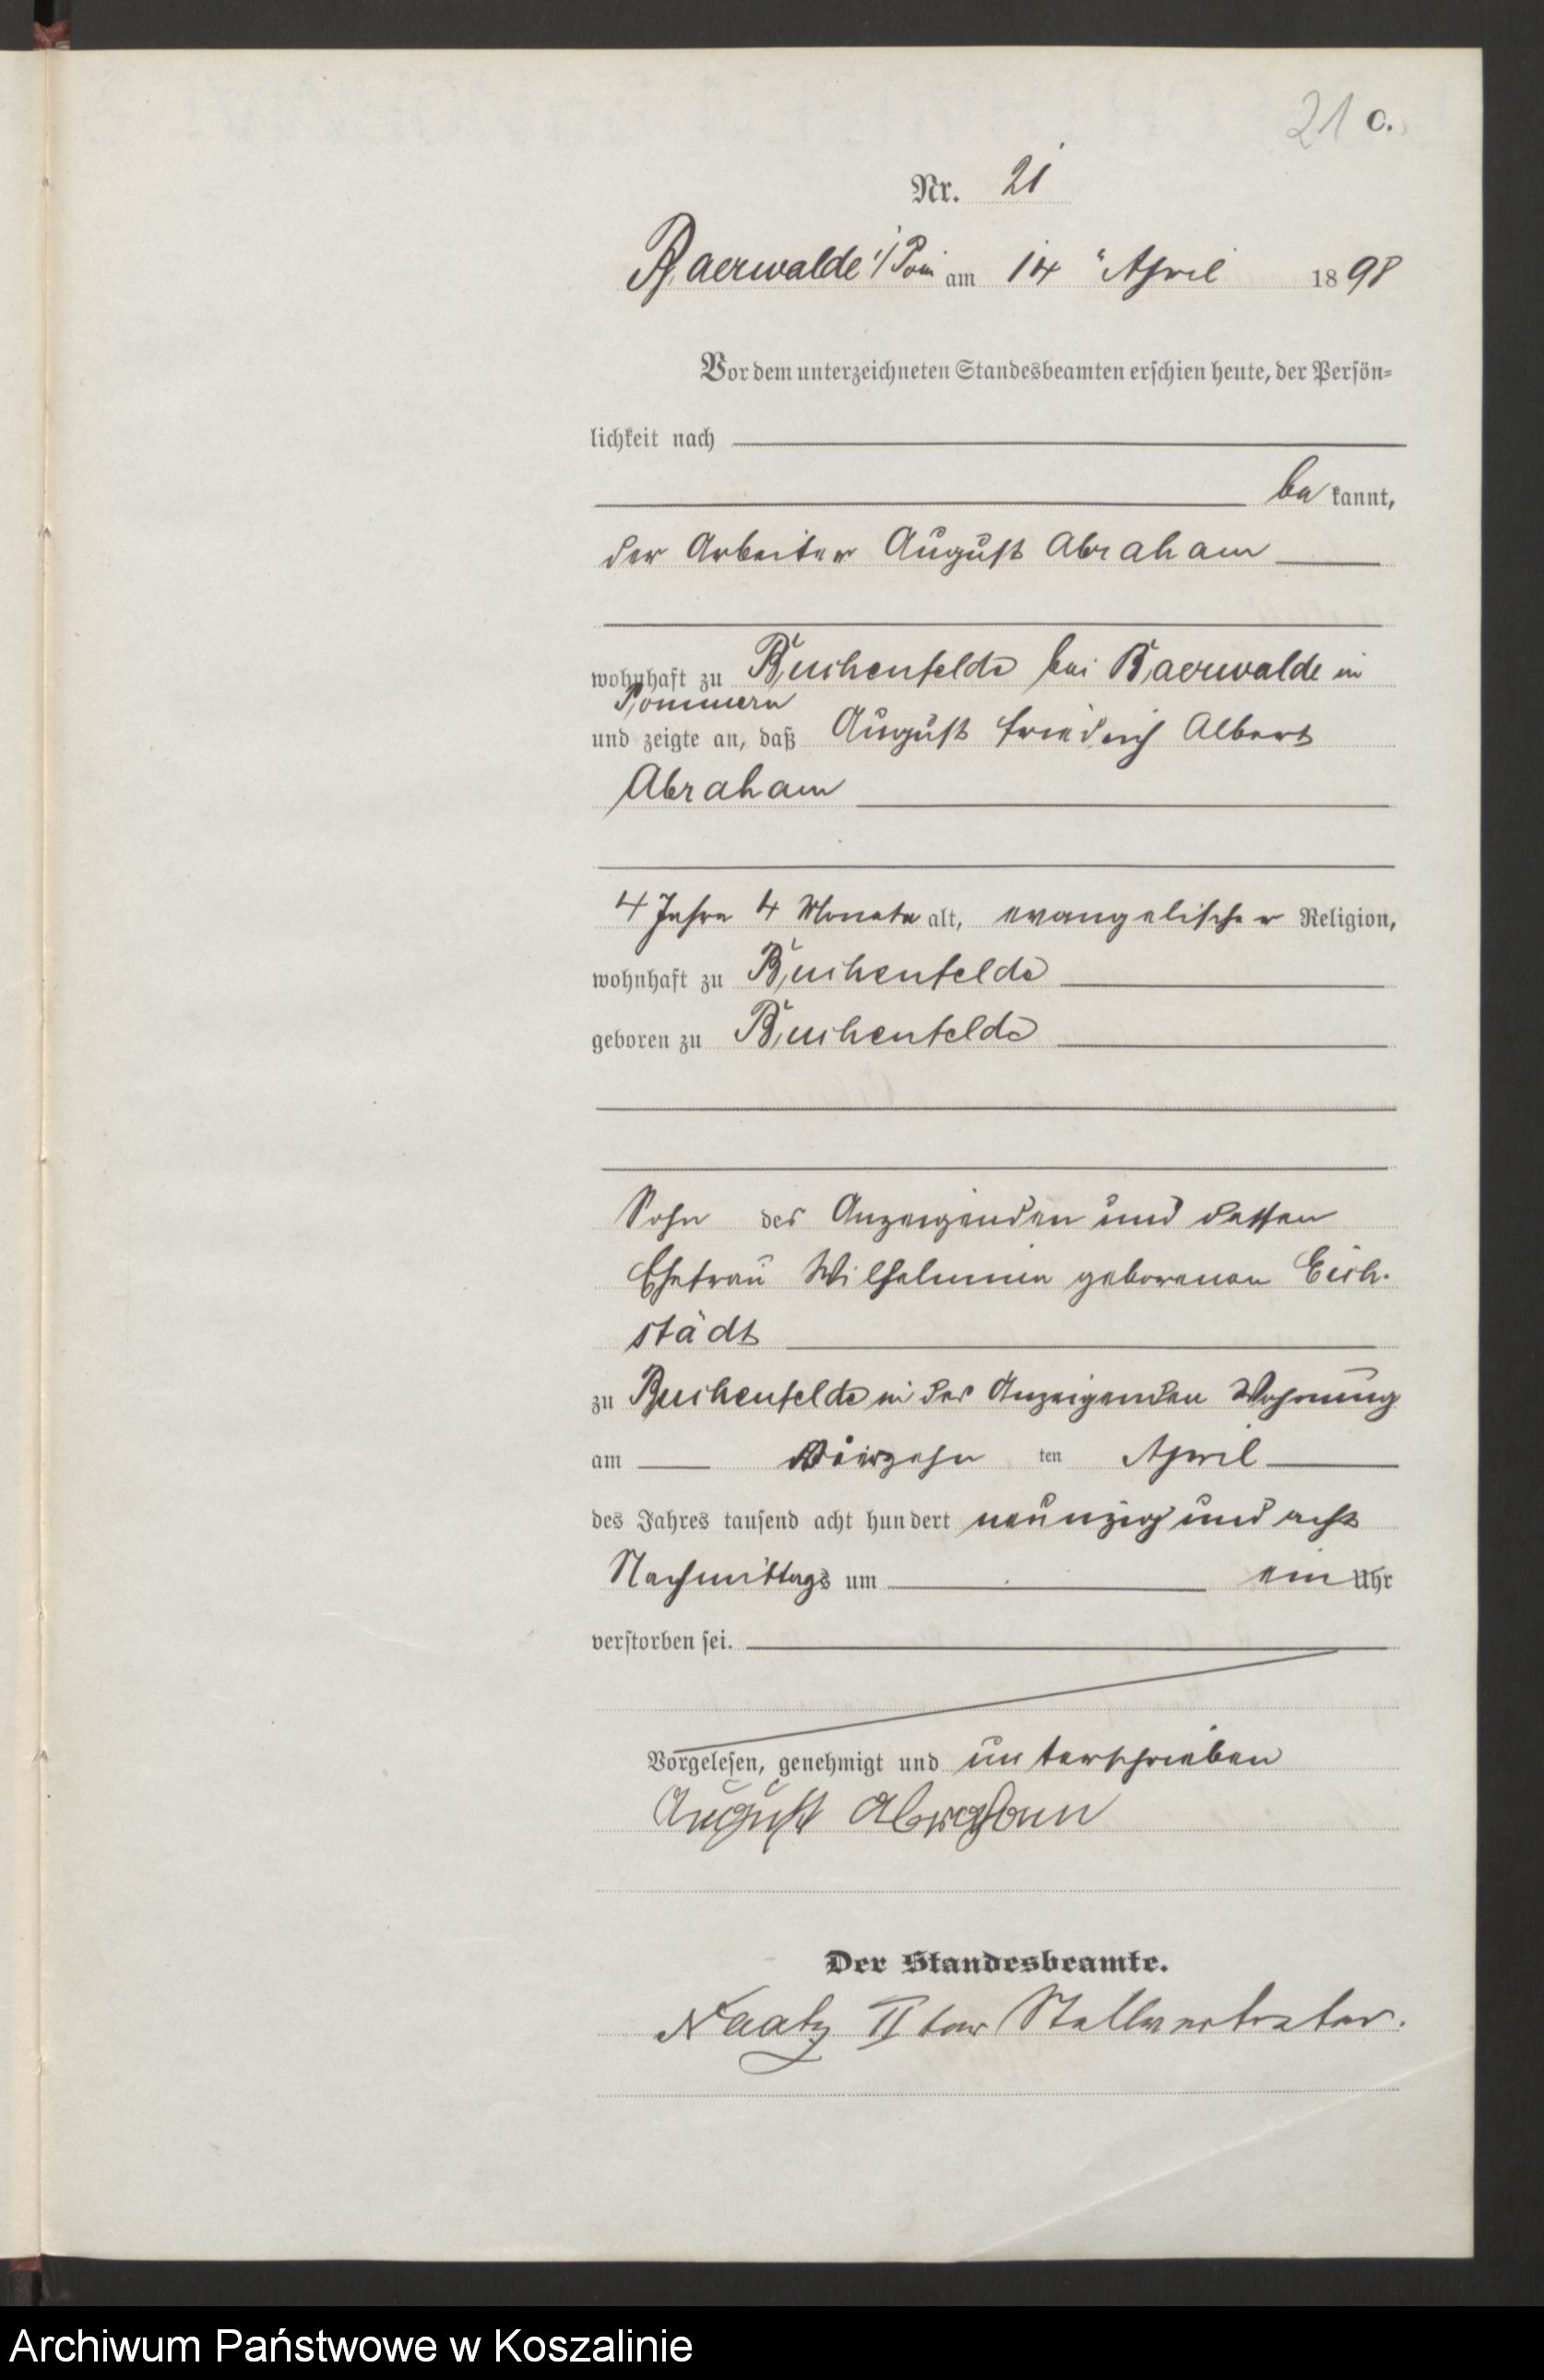 21 C.
Nr. 21
Baerwalde i/Pom am 14 April 1898
Vor dem unterzeichneten Standesbeamten erschien heute, der Persön-
lichkeit nach
be kannt,
der Arbeiter August Abraham
wohnhaft zu Buchenfelde bei Baerwalde in
Pommern
und zeigte an, daß August Friedrich Albert
Abraham
4 Jahre 4 Monate alt, evangelischer Religion,
wohnhaft zu Buchenfelde
geboren zu Buchenfelde
Sohn des Anzeigenden und dessen
Ehefrau Wilhelmine geborenen Eich-
städt
zu Buchenfelde in des Anzeigenden Wohnung
am vierzehn ten April
des Jahres tausend acht hundert neunzig und acht
Nachmittags um ein Uhr
verstorben sei.
Vorgelesen, genehmigt und unterschrieben
August Abraham
Der Standesbeamte.
Naatz II ter Stellvertreter.
Archiwum Państwowe w Koszalinie